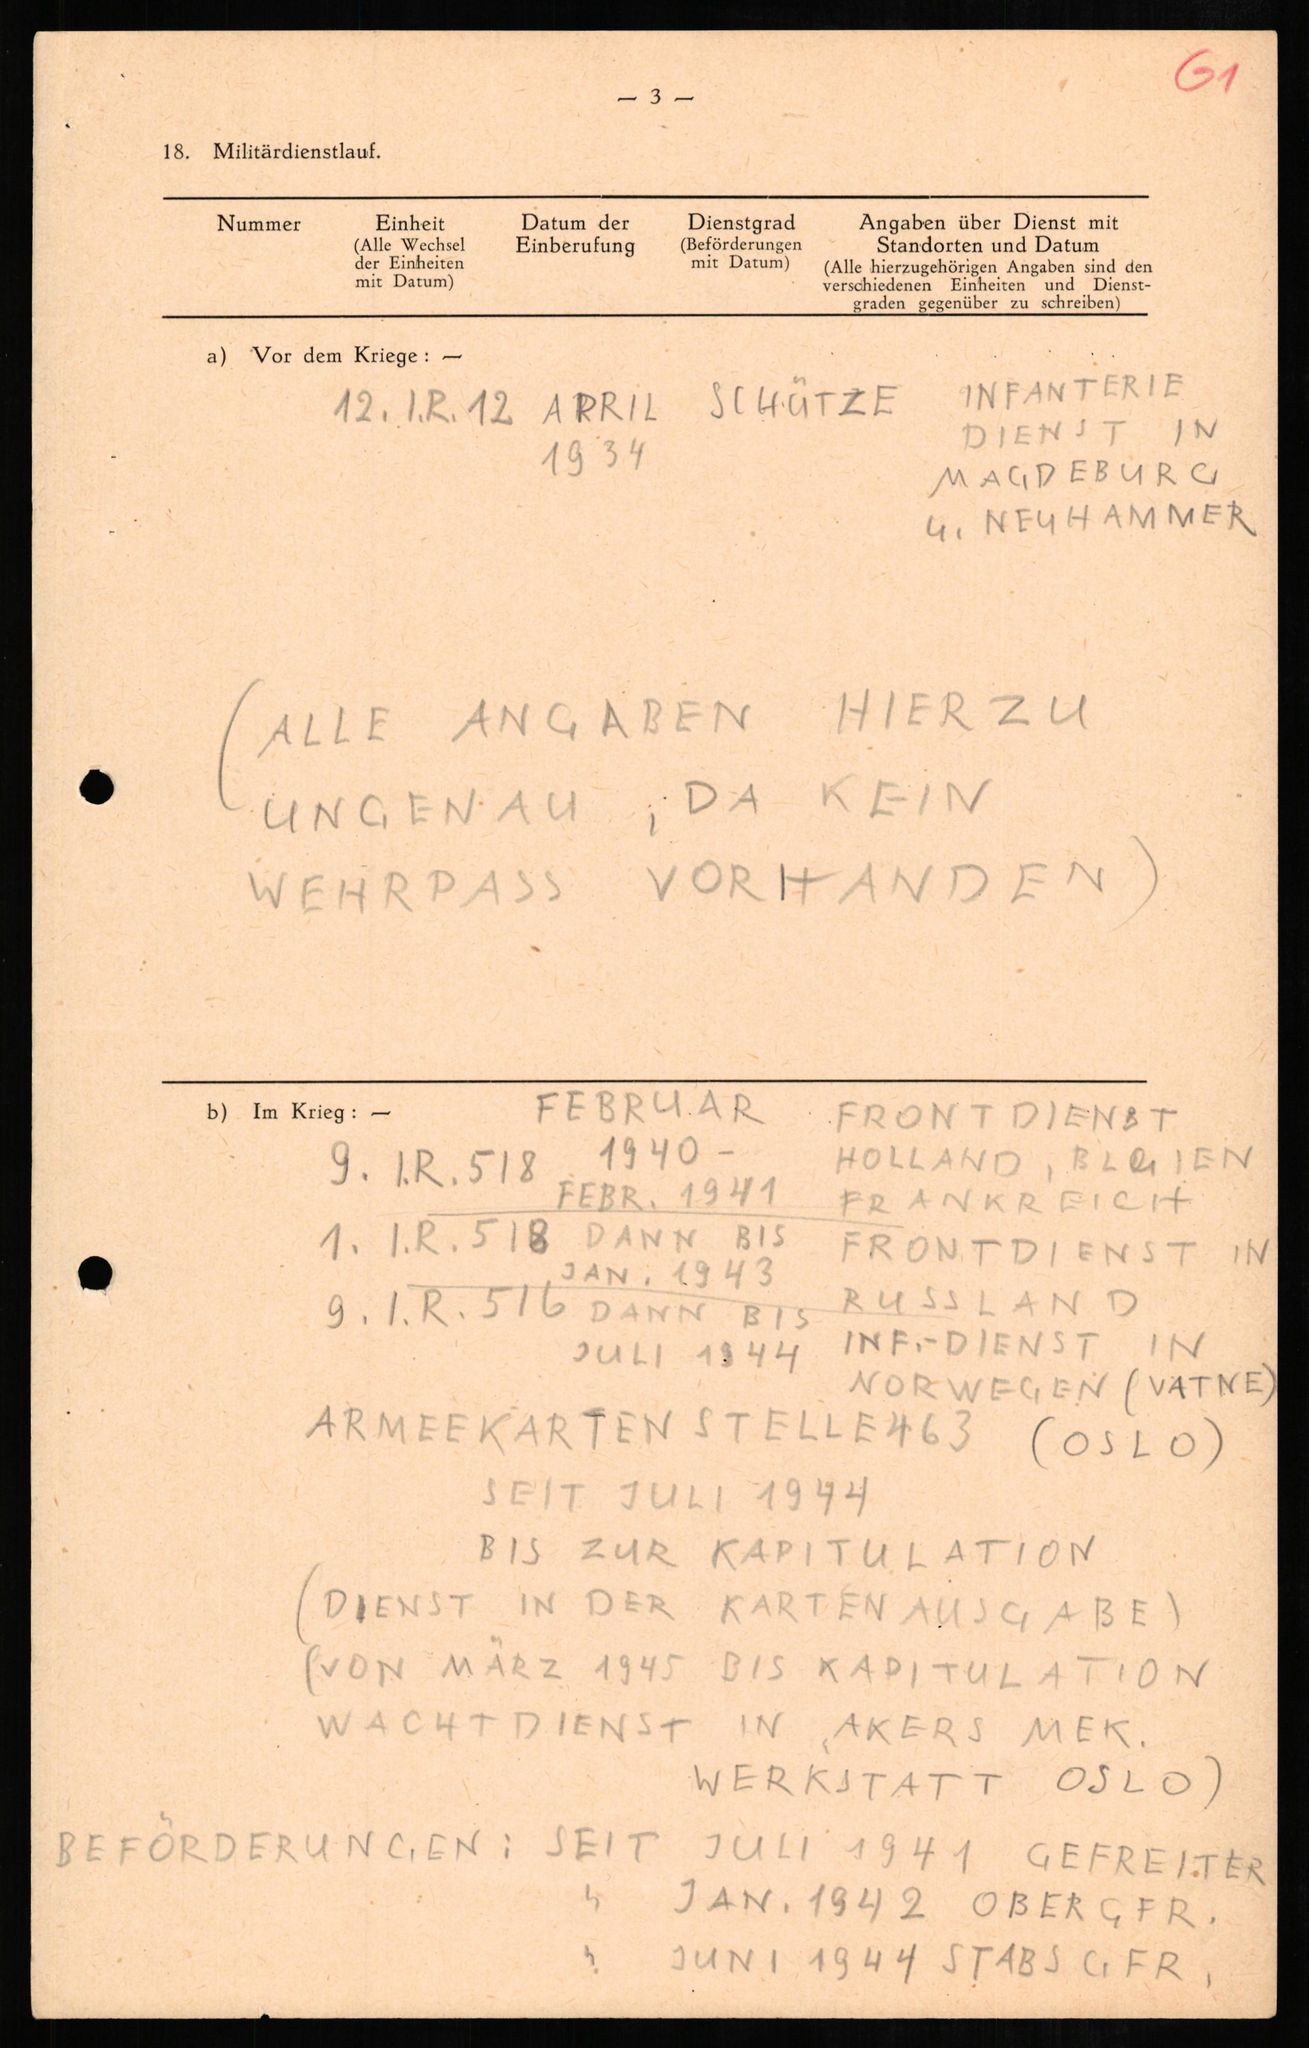 G1
— 3 —
18. Militärdienstlauf.
Nummer
Einheit
(Alle Wechsel
der Einheiten
mit Datum)
Datum der
Einberufung
Dienstgrad
(Beförderungen
mit Datum)
Angaben über Dienst mit
Standorten und Datum
(Alle hierzugehörigen Angaben sind den
verschiedenen Einheiten und Dienst-
graden gegenüber zu schreiben)
a) Vor dem Kriege: —
12. I.R. 12 APRIL SCHÜTZE INFANTERIE
1934 DIENST IN
MAGDEBURG
u. NEUHAMMER
(ALLE ANGABEN HIERZU
UNGENAU, DA KEIN
WEHRPASS VORHANDEN)
b) Im Krieg: — FEBRUAR FRONTDIENST
9. I.R. 518 1940 - HOLLAND, BLGIEN
FEBR. 1941 FRANKREICH
1. I.R. 518 DANN BIS FRONTDIENST IN
JAN. 1943 RUSSLAND
9. I.R. 516 DANN BIS INF.-DIENST IN
JULI 1944 NORWEGEN (VATNE)
ARMEEKARTENSTELLE 463 (OSLO)
SEIT JULI 1944
BIS ZUR KAPITULATION
(DIENST IN DER KARTENAUSGABE)
(VON MÄRZ 1945 BIS KAPITULATION
WACHTDIENST IN AKERS MEK.
WERKSTATT OSLO)
BEFÖRDERUNGEN: SEIT JULI 1941 GEFREITER
" JAN. 1942 OBERGFR.
" JUNI 1944 STABSGFR.